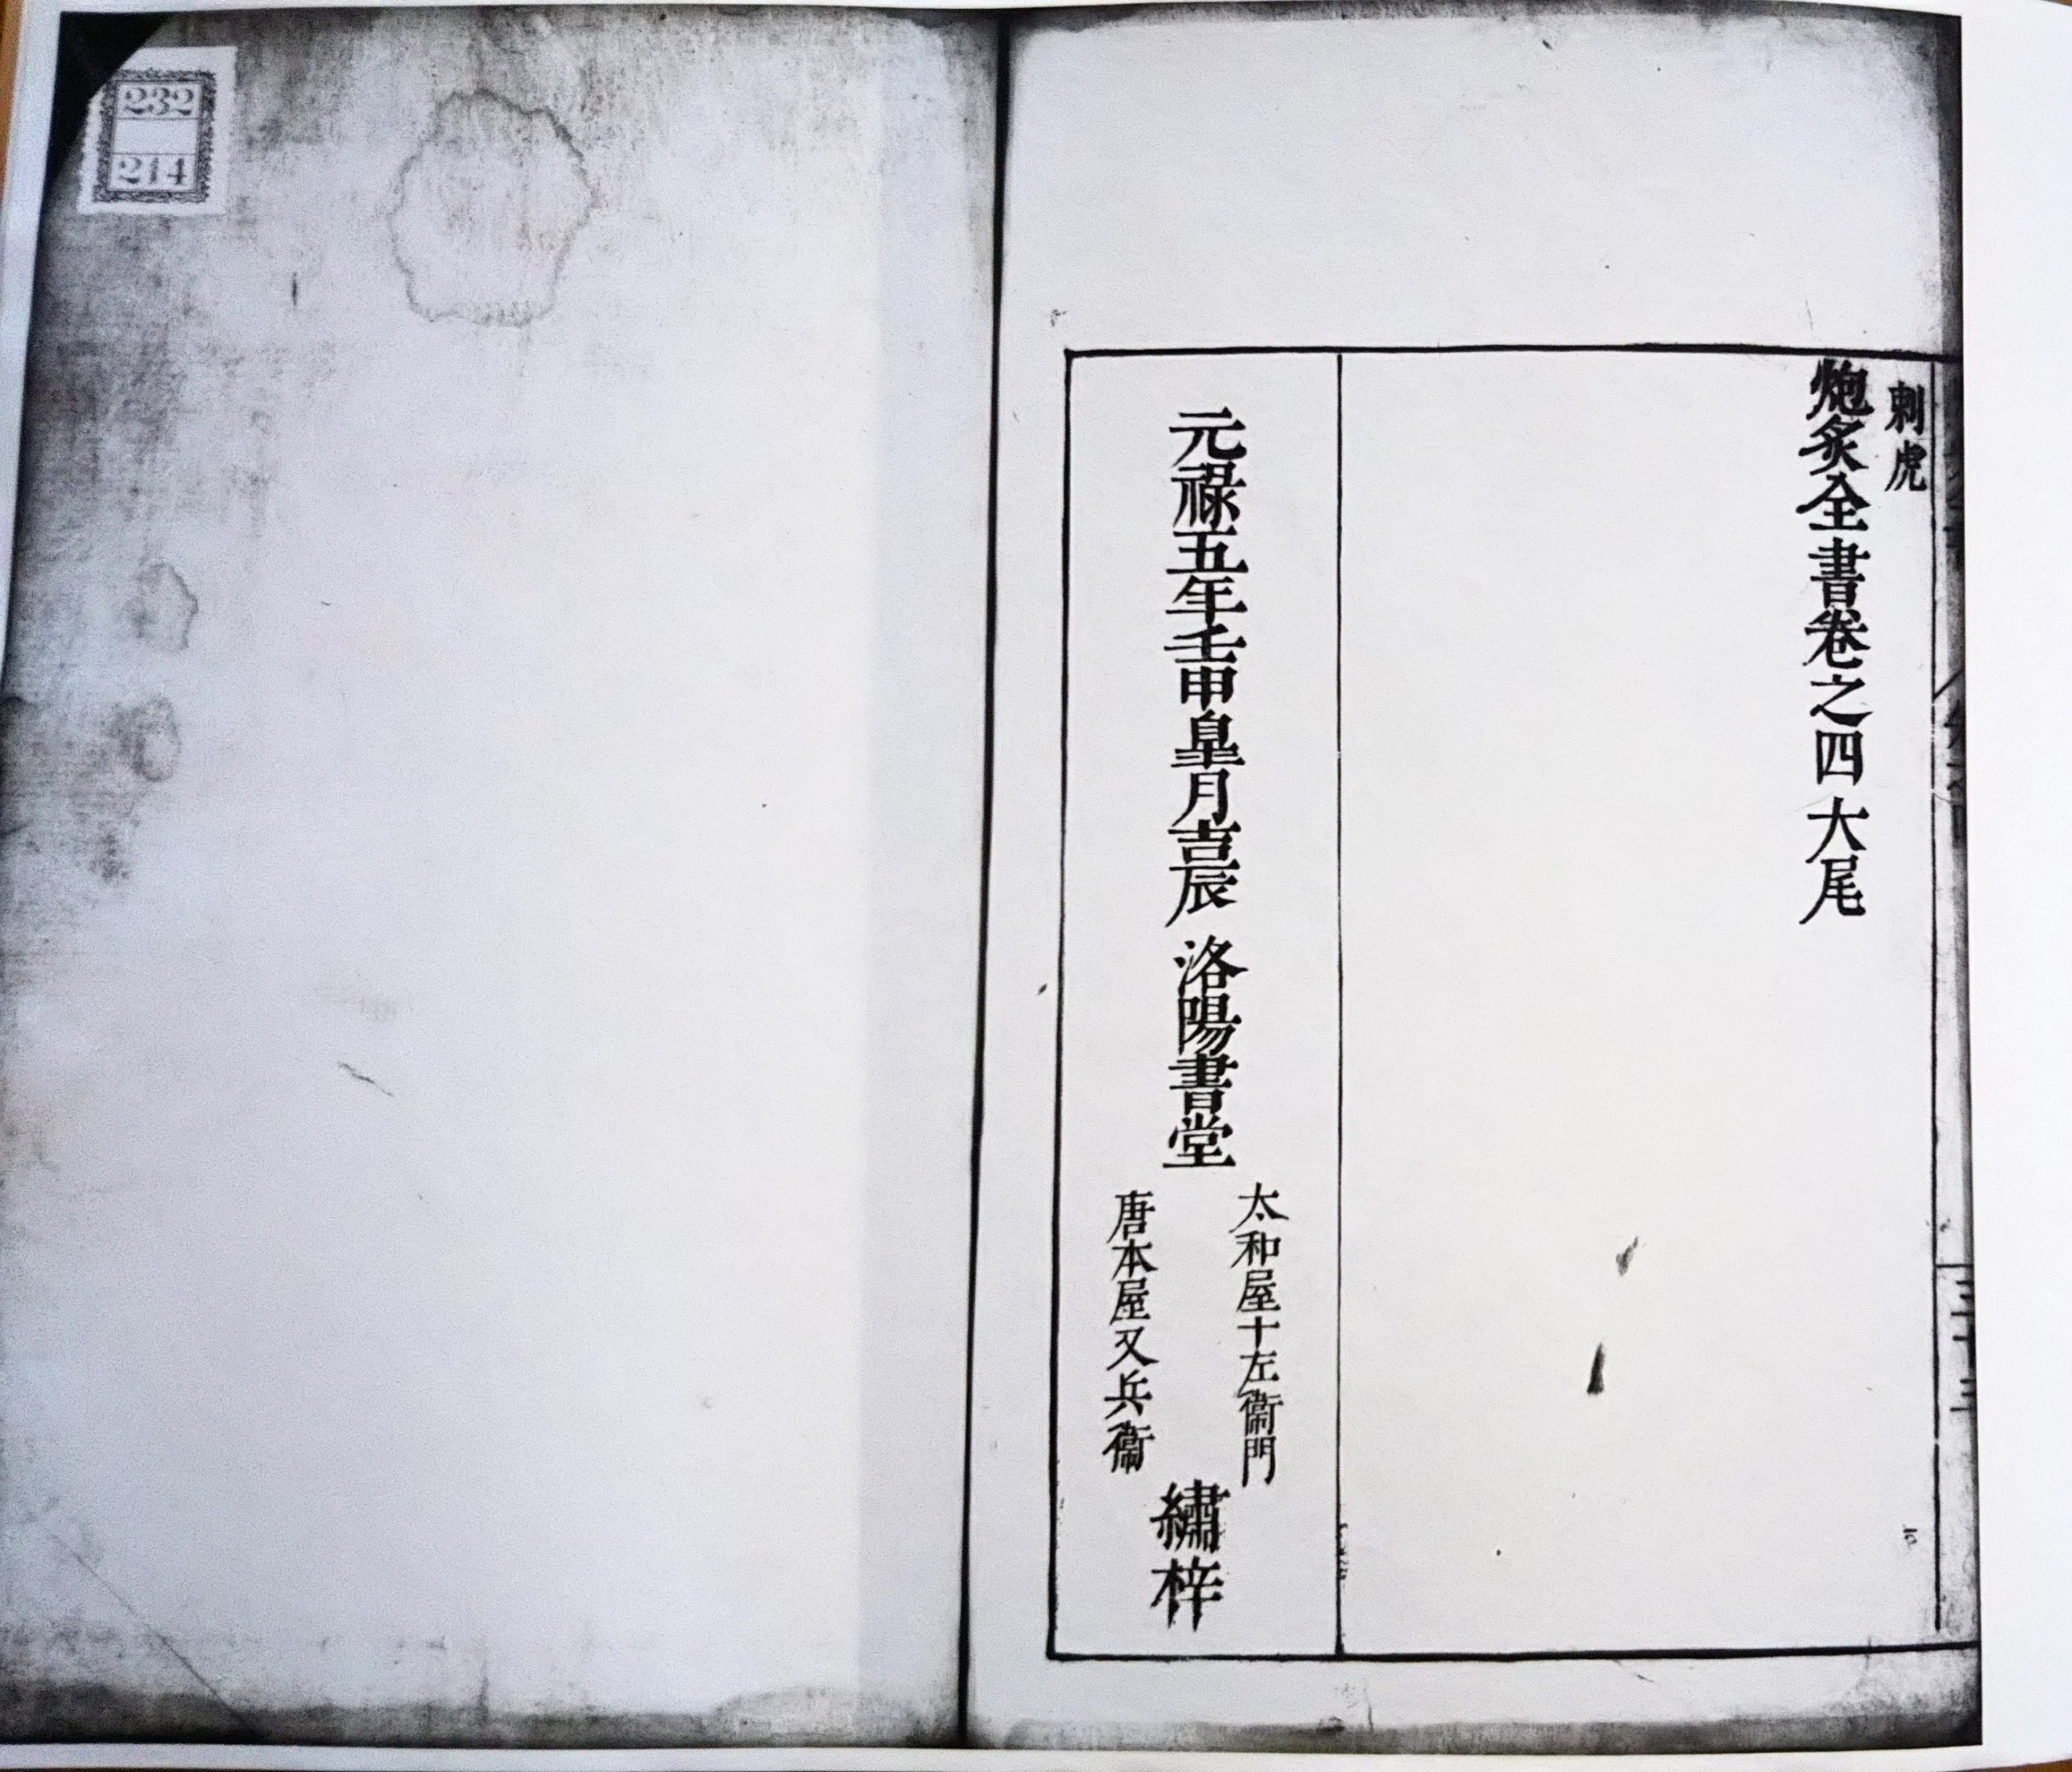 刺虎
炮炙全書卷之四大尾
元祿五年壬申皐月吉辰 洛陽書堂
太和屋十左衞門
唐本屋又兵衞
繡梓
232
214